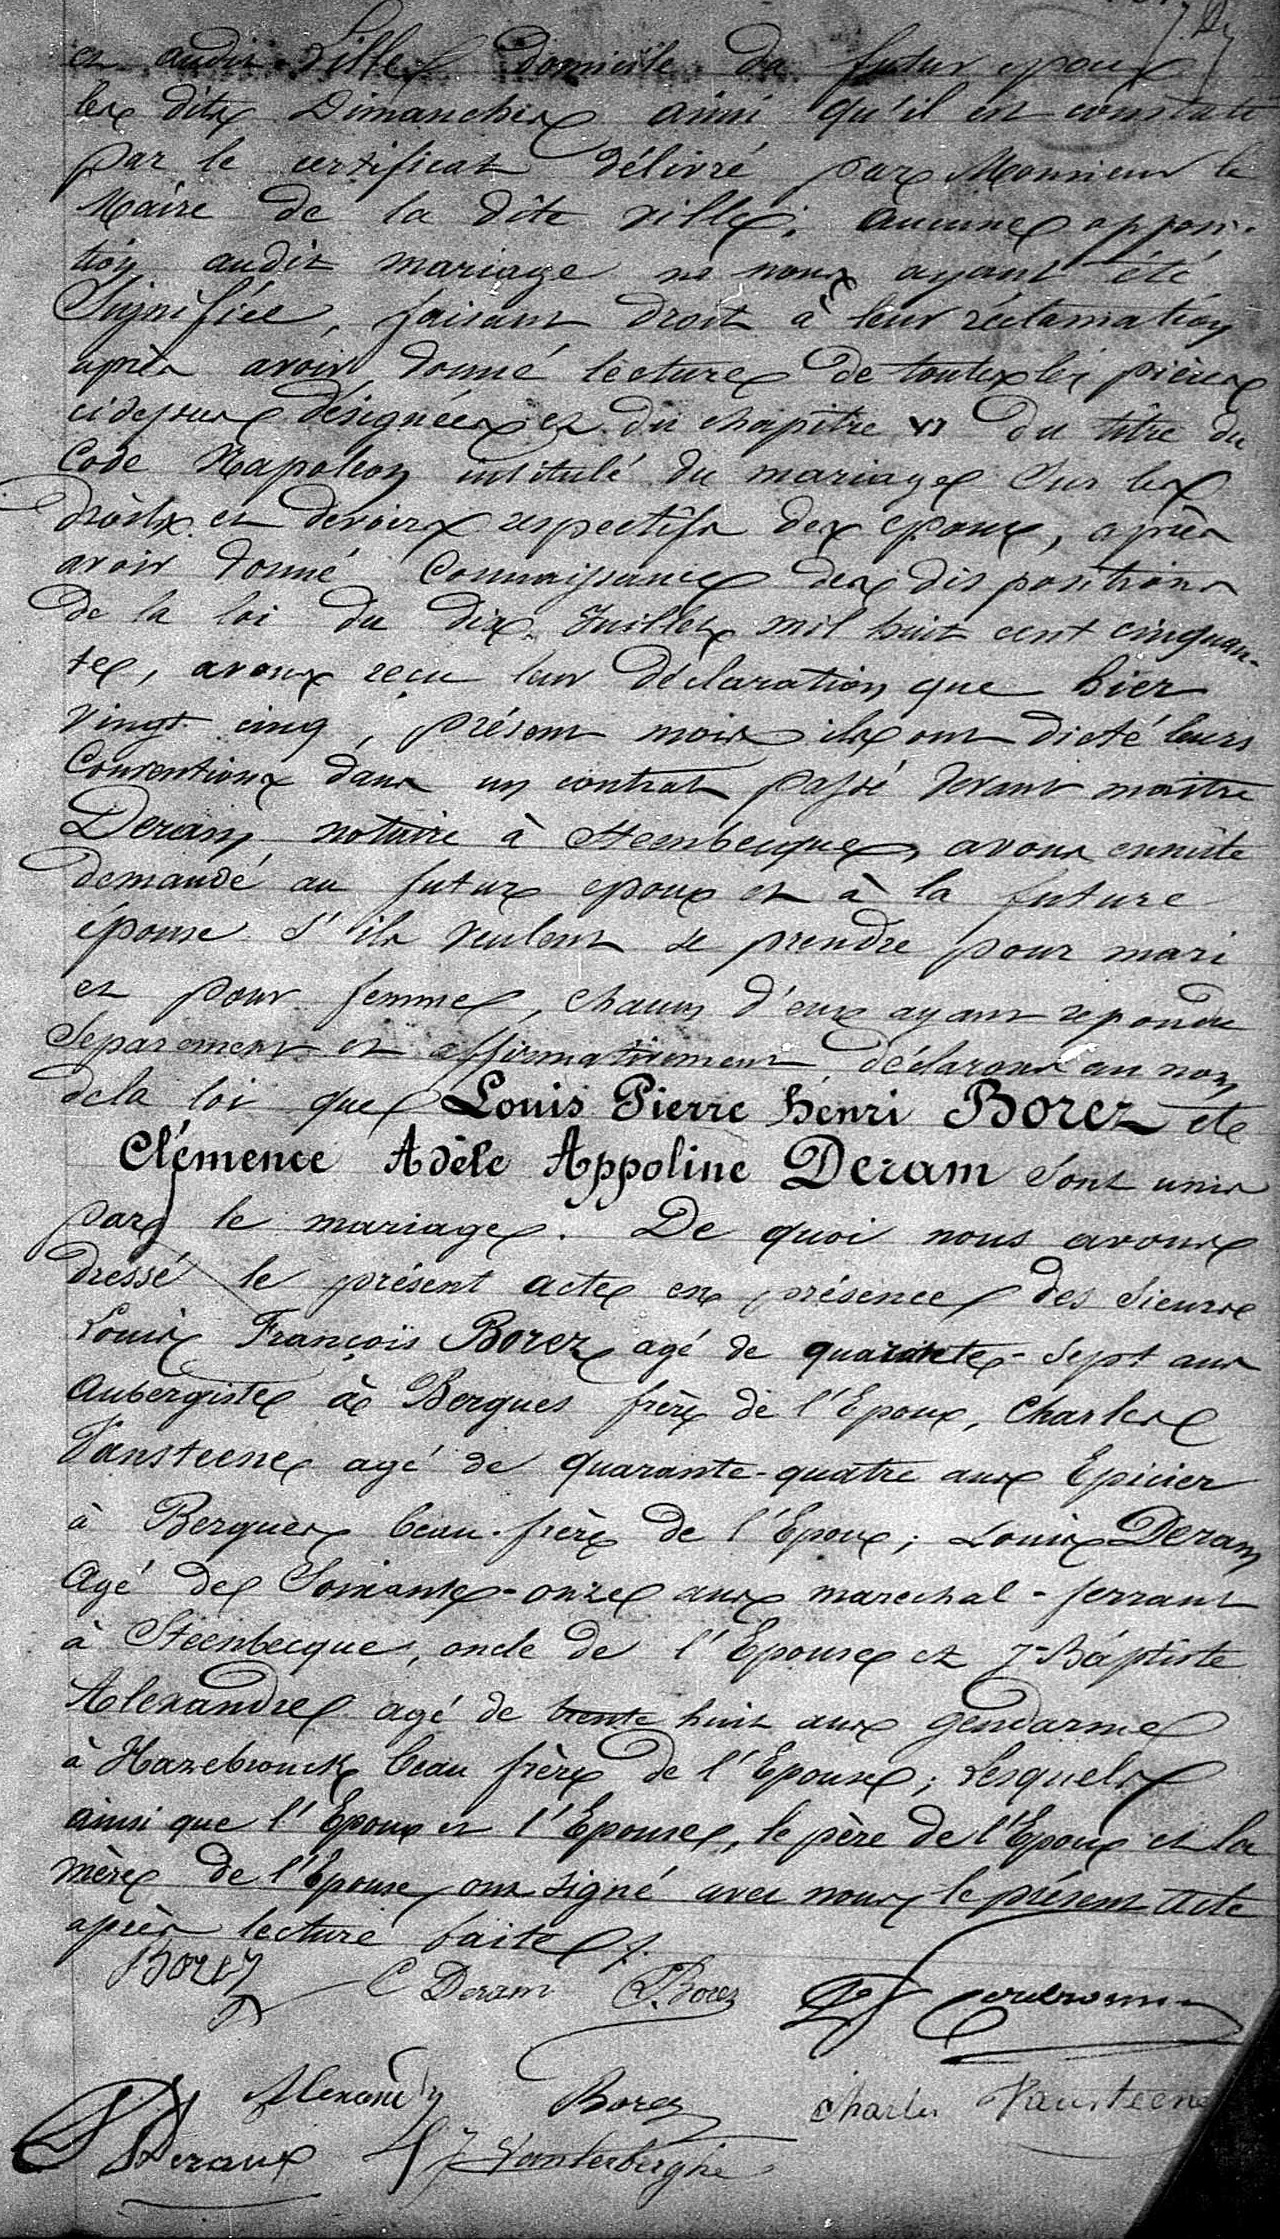 et audit Lille domicile du futur epoux
les dits Dimanches ainsi qu'il est constaté
par le certificat délivré par Monsieur le
Maire de la dite ville; aucune opposi-
tion audit mariage ne nous ayant été
Signifiée, faisant droit à leur réclamation
après avoir donné lecture de toutes les pièces
ci dessus désignées et du chapitre VI du titre du
Code Napoléon intitulé du mariage Sur les
droits et devoirs respectifs des epoux, après
avoir donné Connaissance des dispositions
de la loi du dix Juillet mil huit cent cinquan-
te, avons recu leur déclaration que hier
vingt cinq, présent mois ils ont dicté leurs
Conventions dans un contrat passé devant maitre
Deram notaire à Steenbecque, avons ensuite
demandé au futur epoux et à la future
épouse s'ils veulent se prendre pour mari
et pour femme, chacun d'eux ayant repondu
Separement et affirmativement déclarons au nom
de la loi que Louis Pierre henri Borez et
Clémence Adèle Appoline Deram sont unis
par le mariage. De quoi nous avons
dressé le présent acte en présence des Sieurs
Louis François Borez agé de quarante-sept ans
Aubergiste à Bergues frère de l'Epoux, Charles
Vansteene agé de quarante-quatre ans Epicier
à Bergues beau-frère de l'Epoux; Louis Deram
Agé de Soixante-onze ans marechal-ferrant
à Steenbecque, oncle de l'Epouse et J-Baptiste
Alexandre agé de trente huit ans gendarme
à Hazebrouck beau frère de l'Epouse; Lesquels
ainsi que l'Epoux et l'Epouse, le père de l'Epoux et la
mère de l'Epouse ont signé avec nous le présent Acte
après lecture faite.
Borez C Deram L. Borez
Alexandre Borez Charles Vansteene
Deram Vanterberghe